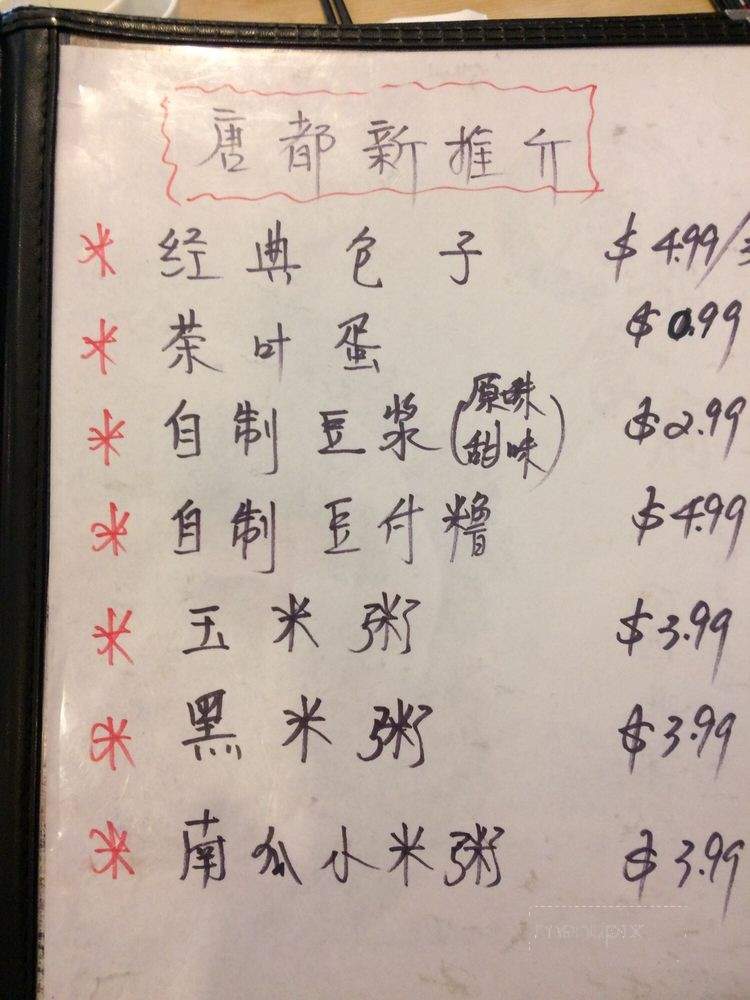 唐都新推介
经典包子 $4.99/
茶叶蛋 $0.99
自制豆浆(原味 甜味) $2.99
自制豆付糟 $4.99
玉米粥 $3.99
黑米粥 $3.99
南瓜小米粥 $3.99
menupix